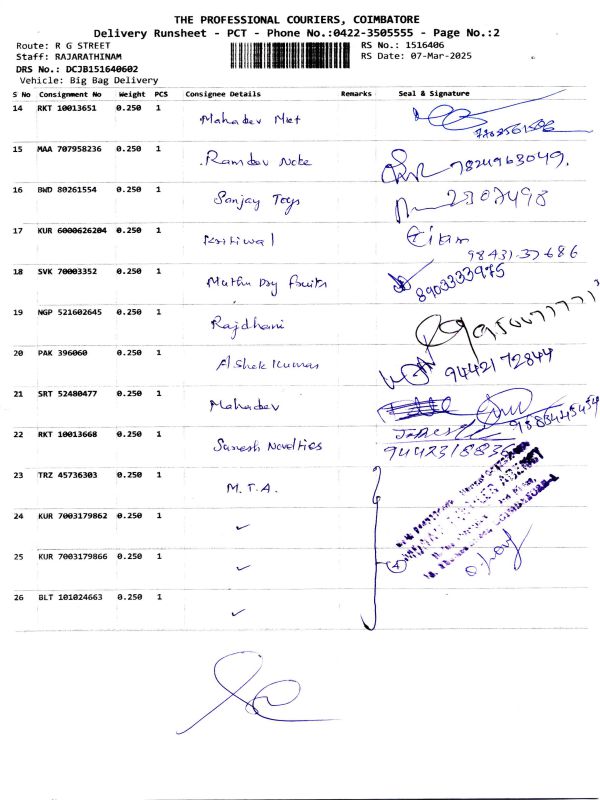 THE PROFESSIONAL COURIERS, COIMBATORE
Delivery Runsheet - PCT - Phone No.:0422-3505555 - Page No.:2
Route: R G STREET RS No.: 1516406
Staff: RAJARATHINAM RS Date: 07-Mar-2025
DRS No.: DCJB151640602
Vehicle: Big Bag Delivery
S No Consignment No Weight PCS Consignee Details Remarks Seal & Signature
14 RKT 10013651 0.250 1 Mahadev Met
15 MAA 707958236 0.250 1 Ramdev Note 7824963049.
16 BWD 80261554 0.250 1 Sanjay Toys
17 KUR 6000626204 0.250 1 Kritiwal 98431-37686
18 SVK 70003352 0.250 1 Muthu Dry fruits 8903333975
19 NGP 521602645 0.250 1 Rajdhani
20 PAK 396060 0.250 1 Ashok Kumar 9442172844
21 SRT 52480477 0.250 1 Mahadev
22 RKT 10013668 0.250 1 Novelties
23 TRZ 45736303 0.250 1 M.T.A.
24 KUR 7003179862 0.250 1 ✓
25 KUR 7003179866 0.250 1 ✓
26 BLT 101024663 0.250 1 ✓
4